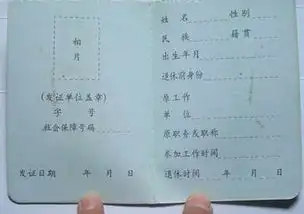 相
片
(发证单位盖章)
字 号
社会保障号码
发证日期 年 月 日
姓 名 性别
民 族 籍贯
出生年月
退休前身份
原工作
单 位
原职务或职称
参加工作时间
退休时间 年 月 日